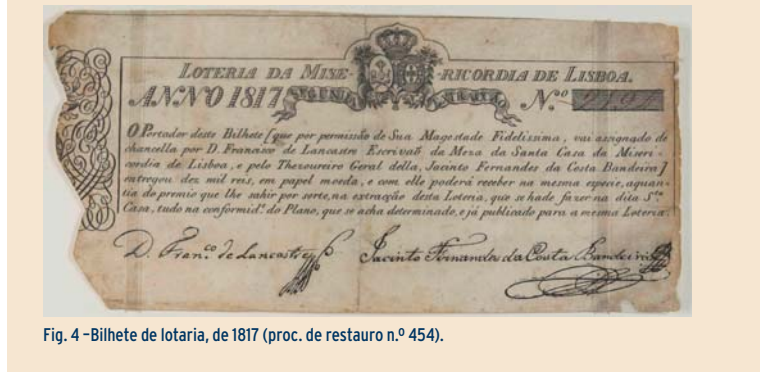 LOTERIA DA MISE- -RICORDIA DE LISBOA.
ANNO 1817 SEGUNDA EXTRACÇAÕ N.º
O Portador deste Bilhete [que por permissão de Sua Magestade Fidelissima, vai assignado de
chancella por D. Francisco de Lancastre Escrivaõ da Meza da Santa Casa da Miseri-
cordia de Lisboa, e pelo Thezoureiro Geral della, Jacinto Fernandes da Costa Bandeira]
entregou dez mil reis, em papel moeda, e com elle poderá receber na mesma especie, aquan-
tia do premio que lhe sahir por sorte, na extracção desta Loteria, que se hade fazer na dita S.ta
Casa, tudo na conformid.e do Plano, que se acha determinado, e já publicado para a mesma Loteria.
D. Fran.co de Lancastre Jacinto Fernandes da Costa Bandeira
Fig. 4 –Bilhete de lotaria, de 1817 (proc. de restauro n.º 454).